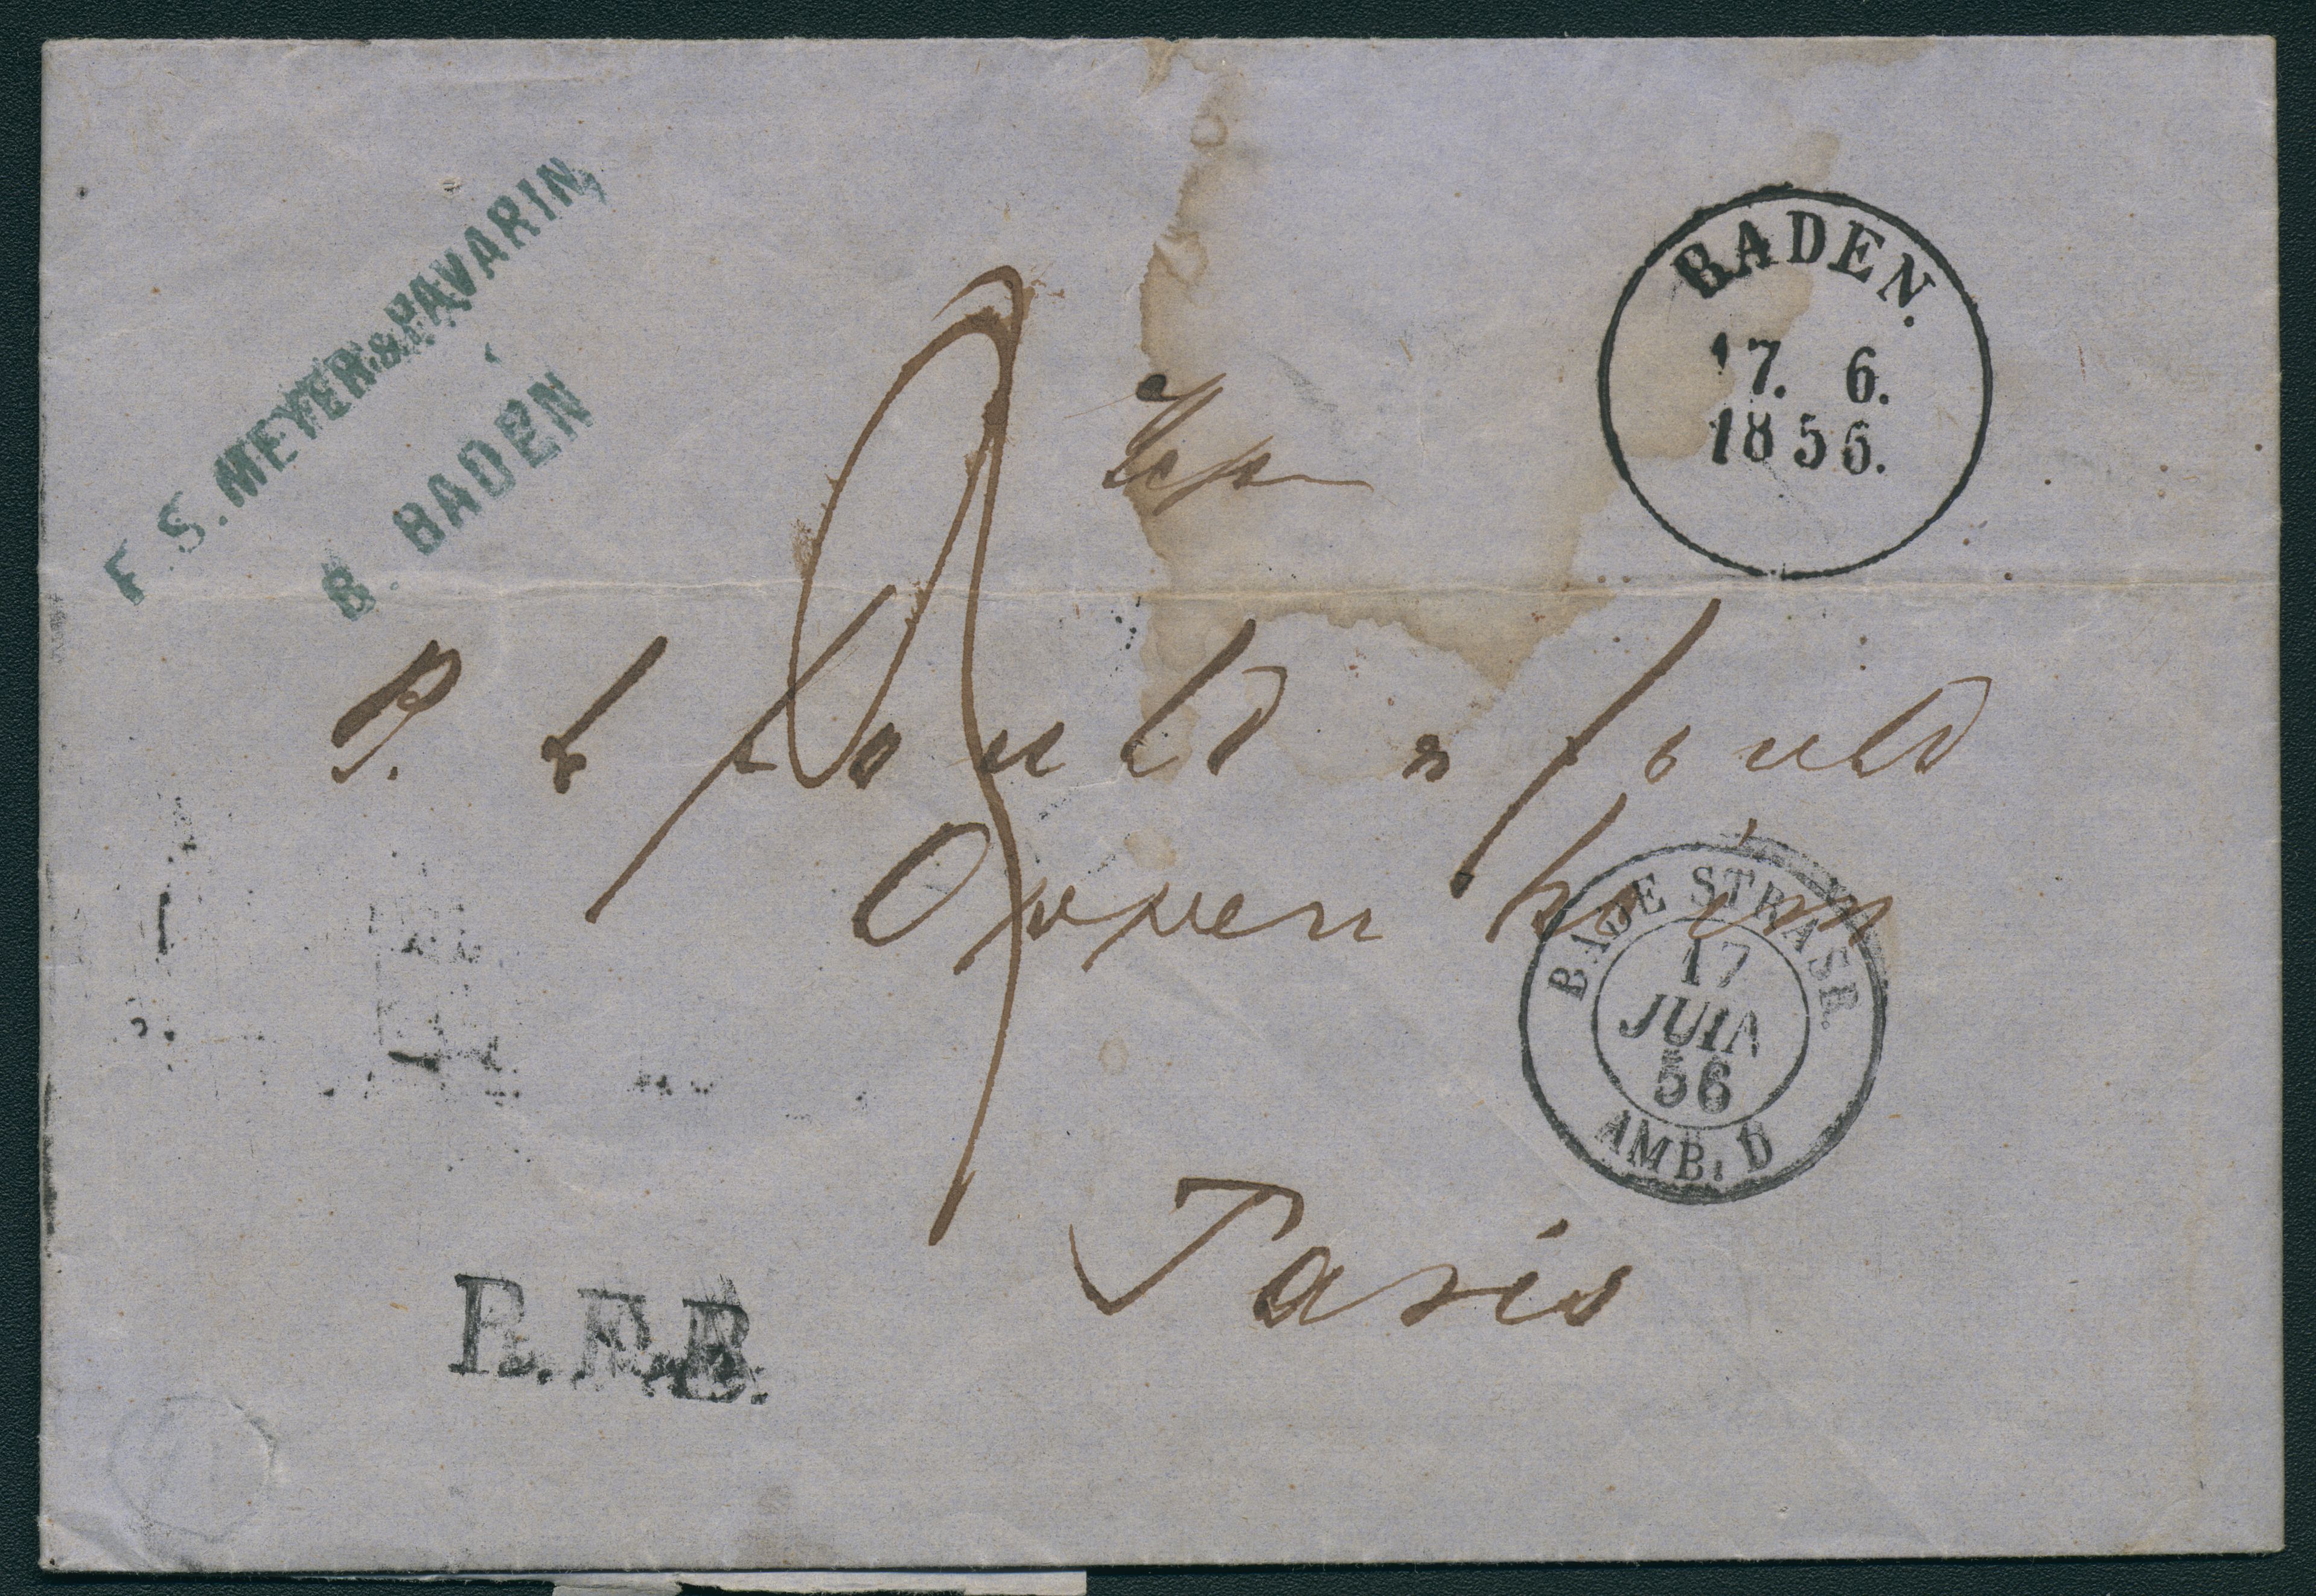 F. S. MEYER & PAVARIN,
B. BADEN
BADEN.
17. 6.
1856.
B. L. Fould & Fould
Oppenheim
BADE STRASB.
17
JUIN
56
AMB. D
Paris
B.